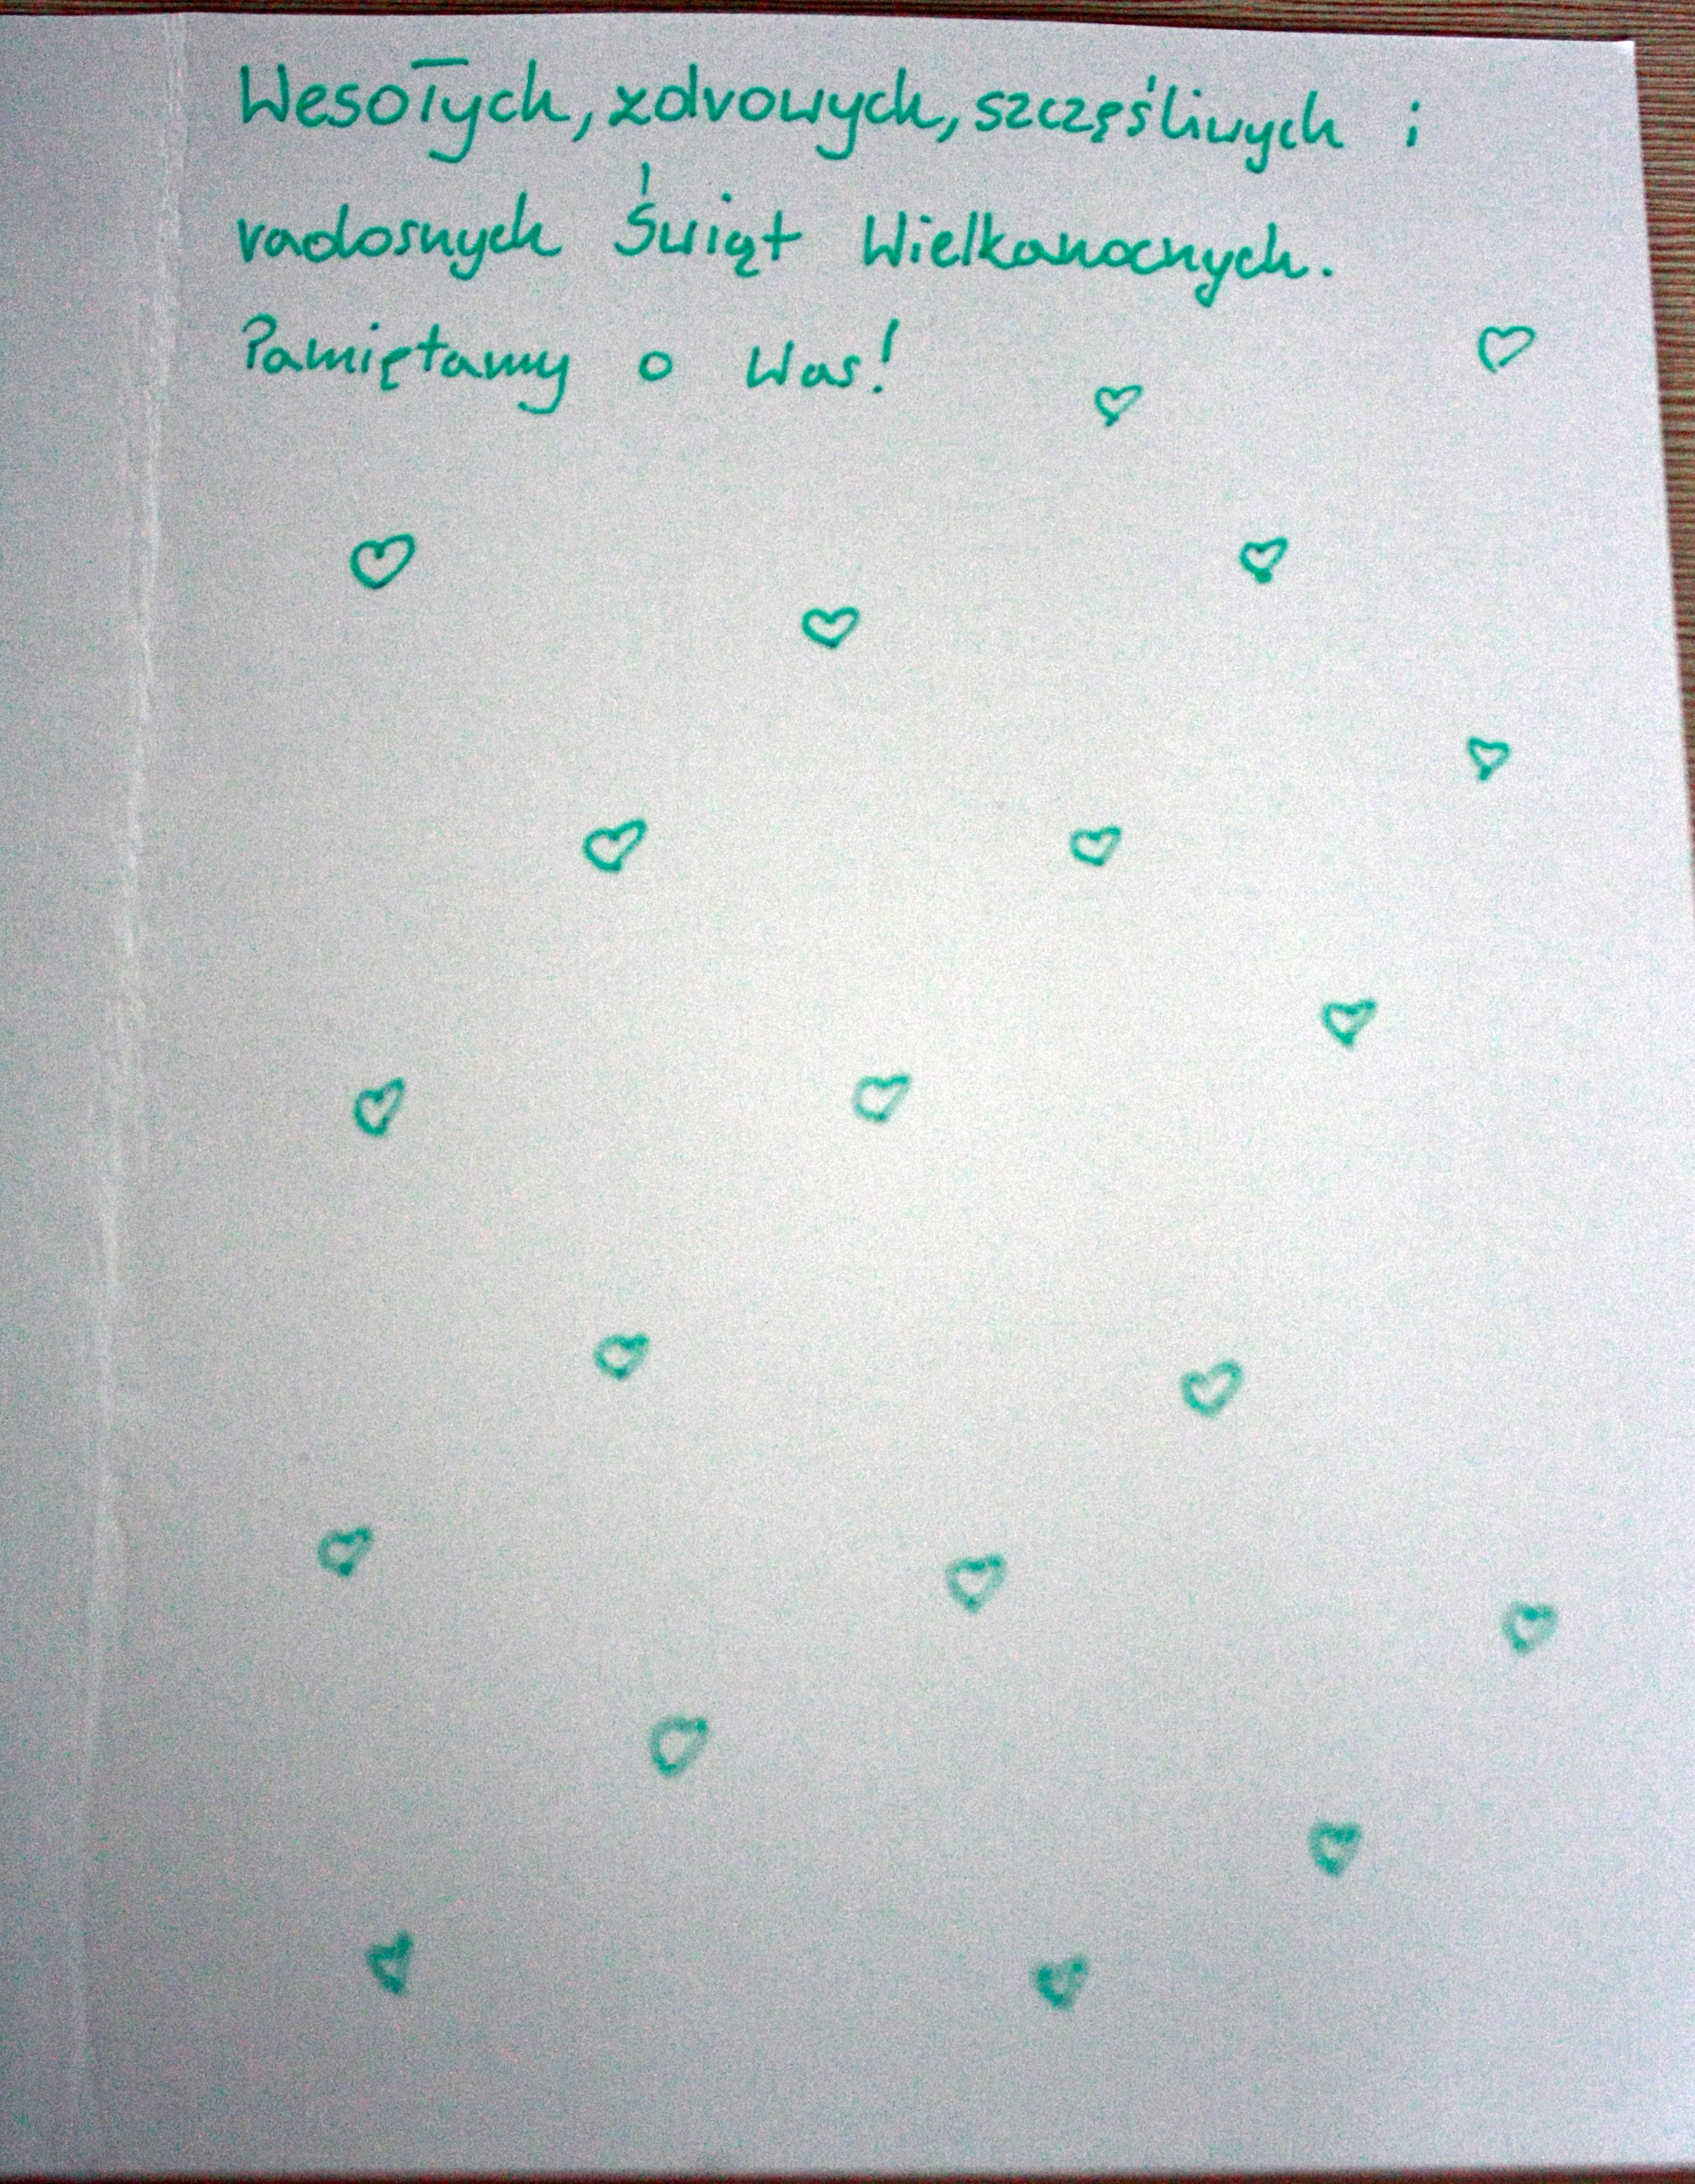 Wesołych, zdrowych, szczęśliwych i
radosnych Świąt Wielkanocnych.
Pamiętamy o Was!